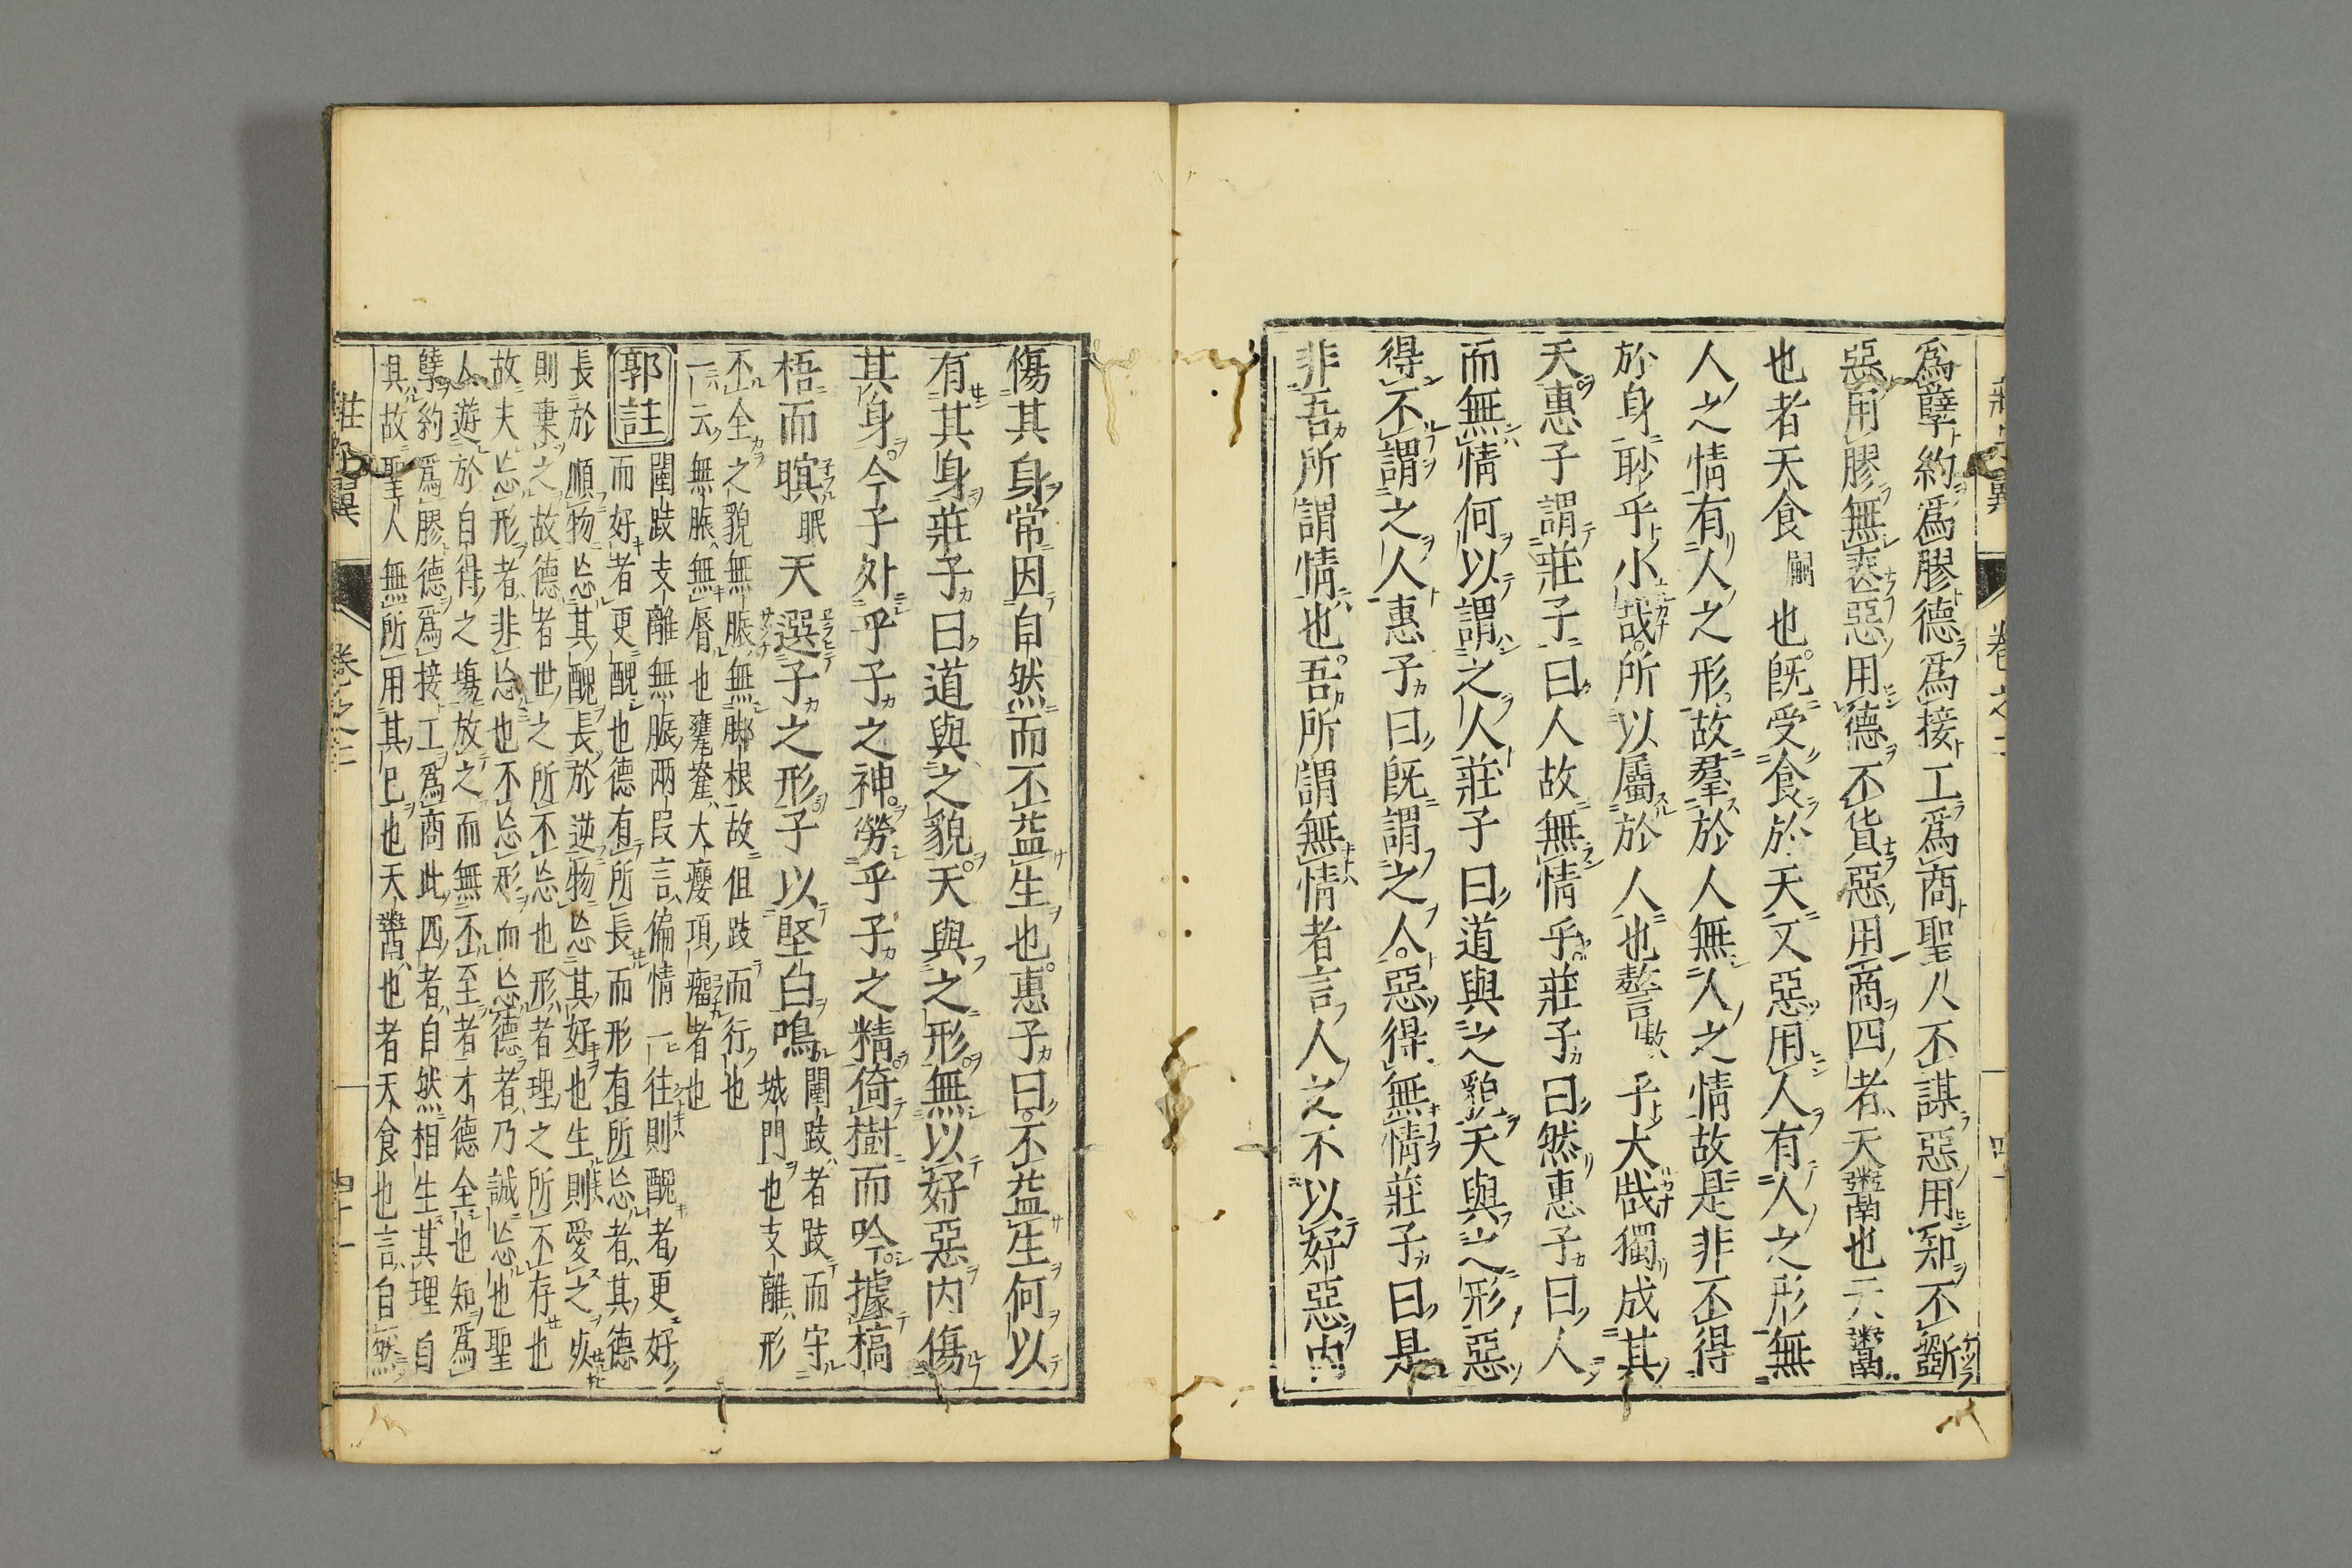 爲孽約爲膠德爲接工爲商聖人不謀惡用知不斵
惡用膠無喪惡用德不貨惡用商四者天鬻也天鬻
也者天食嗣也旣受食於天又惡用人有人之形無
人之情有人之形故羣於人無人之情故是非不得
於身眇乎小哉所以屬於人也謷敖乎大哉獨成其
天惠子謂莊子曰人故無情乎莊子曰然惠子曰人
而無情何以謂之人莊子曰道與之貌天與之形惡
得不謂之人惠子曰旣謂之人惡得無情莊子曰是
非吾所謂情也吾所謂無情者言人之不以好惡內
傷其身常因自然而不益生也惠子曰不益生何以
有其身莊子曰道與之貌天與之形無以好惡內傷
其身今子外乎子之神勞乎子之精倚樹而吟據槁
梧而瞑眠天選子之形子以堅白鳴
闉跂者跂而守
城門也支離形
不全之貌無脤無脚根故但跂而行也
一云無脤無脣也甕㼜大癭項瘤者也
郭註
闉跂支離無脤兩段言偏情一往則醜者更好
而好者更醜也德有所長而形有所忘者其德
長於順物忘其醜長於逆物忘其好也生則愛之死
則棄之故德者世之所不忘也形者理之所不存也
故夫忘形者非忘也不忘形而忘德者乃誠忘也聖
人遊於自得之塲放之而無不至者才德全也知爲
孽約爲膠德爲接工爲商此四者自然相生其理自
具故聖人無所用其已也天鬻也者天食也言自然
莊子翼
卷之二
四十一